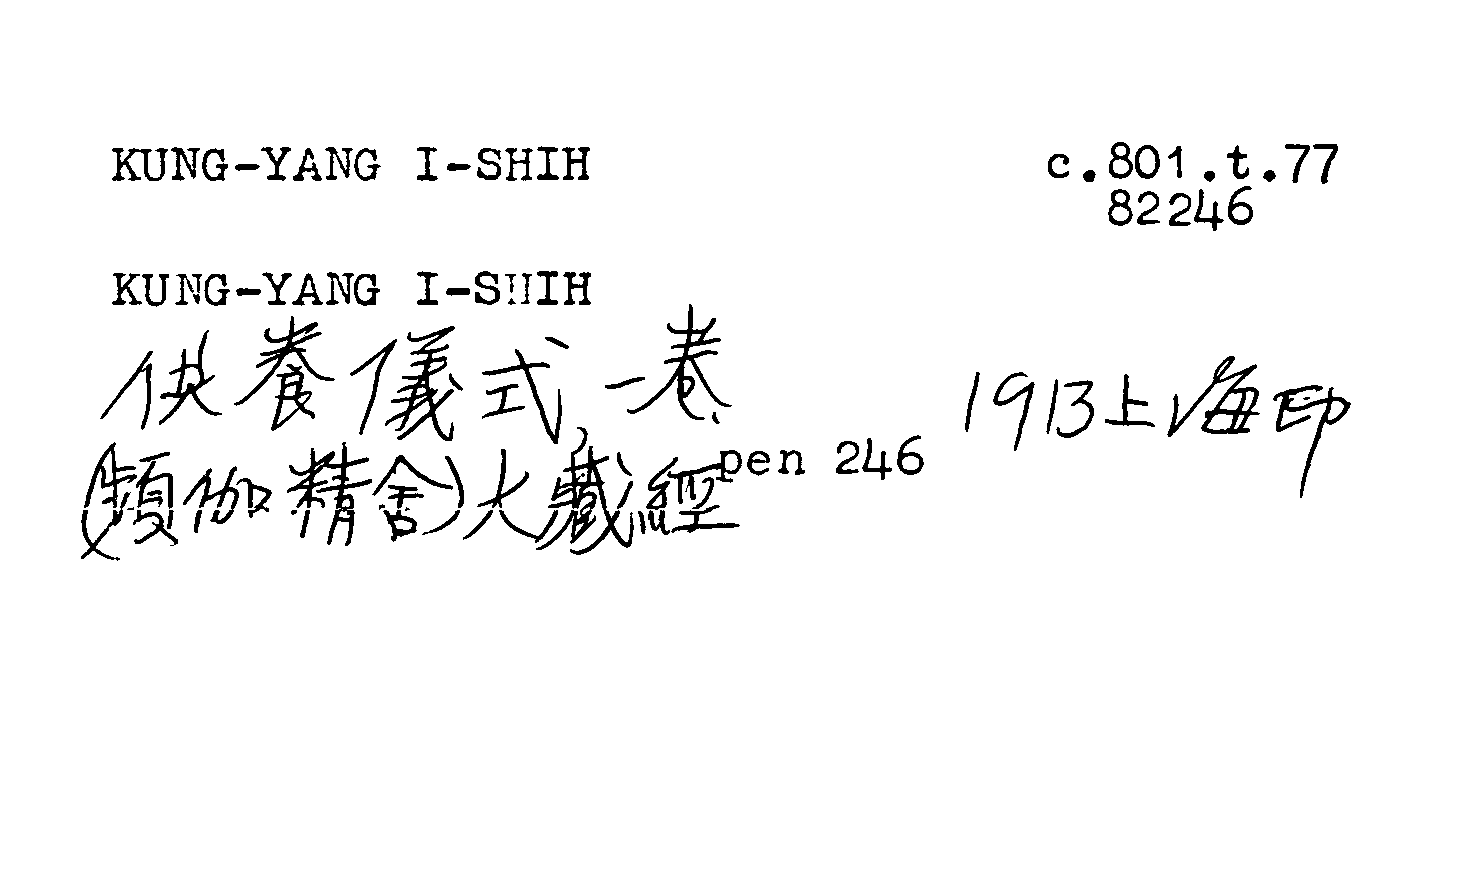 KUNG-YANG I-SHIH c.801.t.77
82246
KUNG-YANG I-SHIH
供養儀式,一卷. 1913上海印
(頻伽精舍)大藏經 pen 246